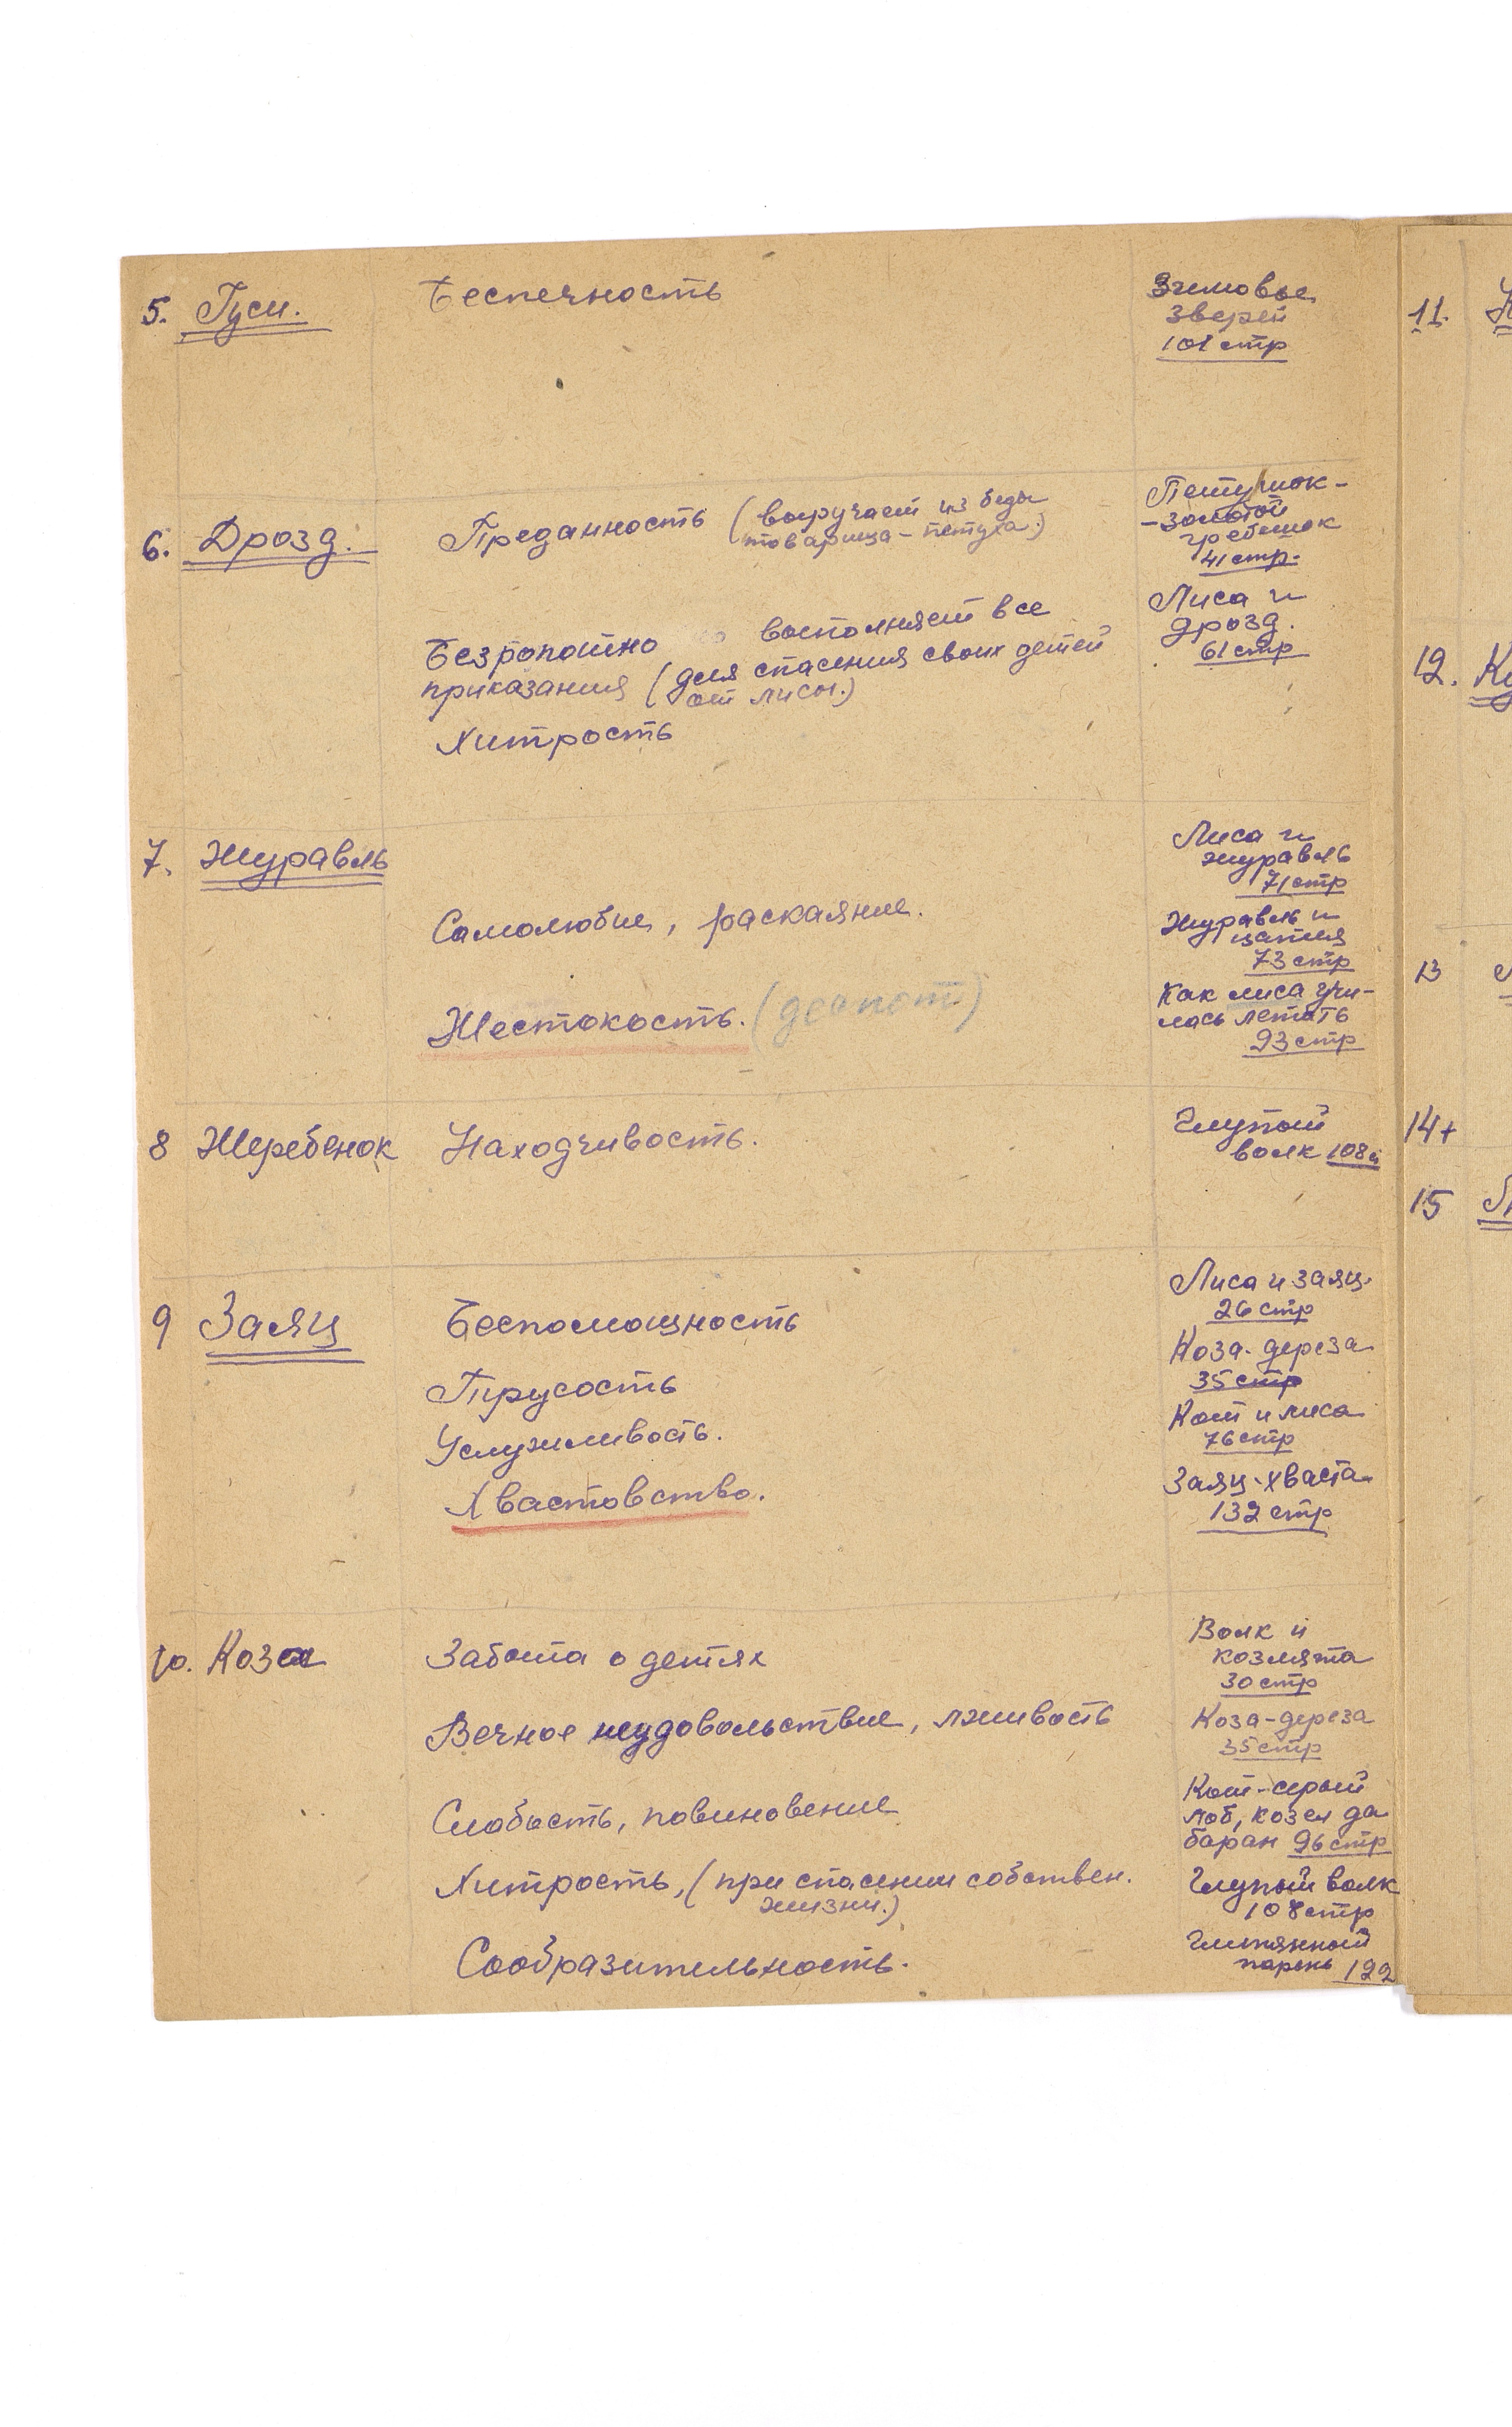 5. Гуси.
Беспечность
Зимовье
зверей
101 стр
6. Дрозд.
Преданность (выручает из беды
товарища - петуха.)
Петушок -
- золотой
гребешок
41 стр.
Безропотно выполняет все
приказания (для спасения своих детей
от лисы.)
Хитрость
Лиса и
дрозд.
61 стр
7. Журавль
Лиса и
журавль
71 стр
Самолюбие, раскаяние.
Журавль и
цапля
73 стр
Жестокость. (деспот)
Как лиса учи-
лась летать
93 стр
8 Жеребенок
Находчивость.
Глупый
волк 108
9 Заяц
Беспомощность
Лиса и заяц.
26 стр
Трусость
Коза-дереза
35 стр
Услужливость.
Кот и лиса
76 стр
Хвастовство.
Заяц-хваста
132 стр
10. Коза
Забота о детях
Волк и
козлята
30 стр
Вечное неудовольствие, лживость
Коза-дереза
35 стр
Слабость, повиновение
Кот-серый
лоб, козел да
баран 96 стр
Хитрость, (при спасении собствен.
жизни.)
Глупый волк
108 стр
Сообразительность.
Глиняный
парень 122
11.
12. К
13
14+
15